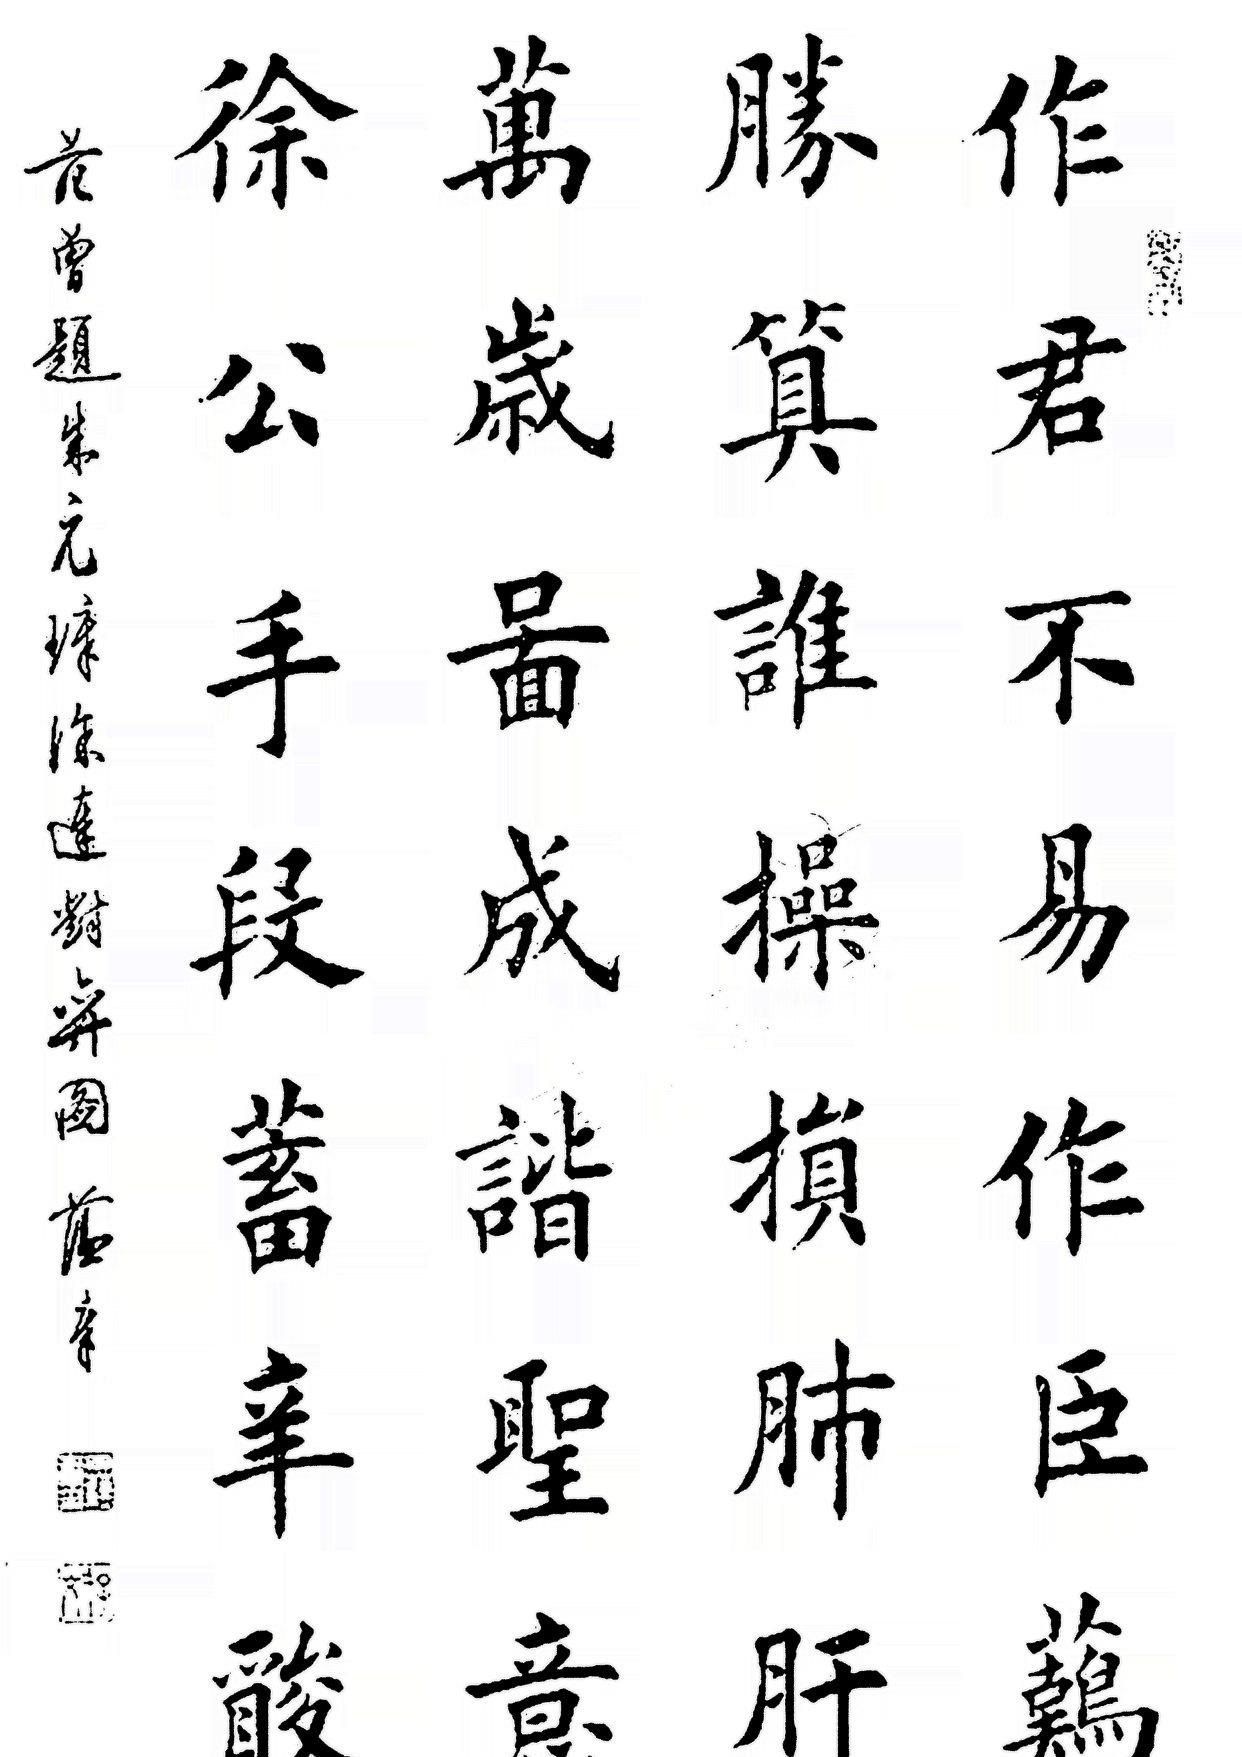 作君不易作臣難
勝算誰操損肺肝
萬歲啚成諧聖意
徐公手段蓄辛酸
范曾題朱元璋徐達對弈圖 蓝章